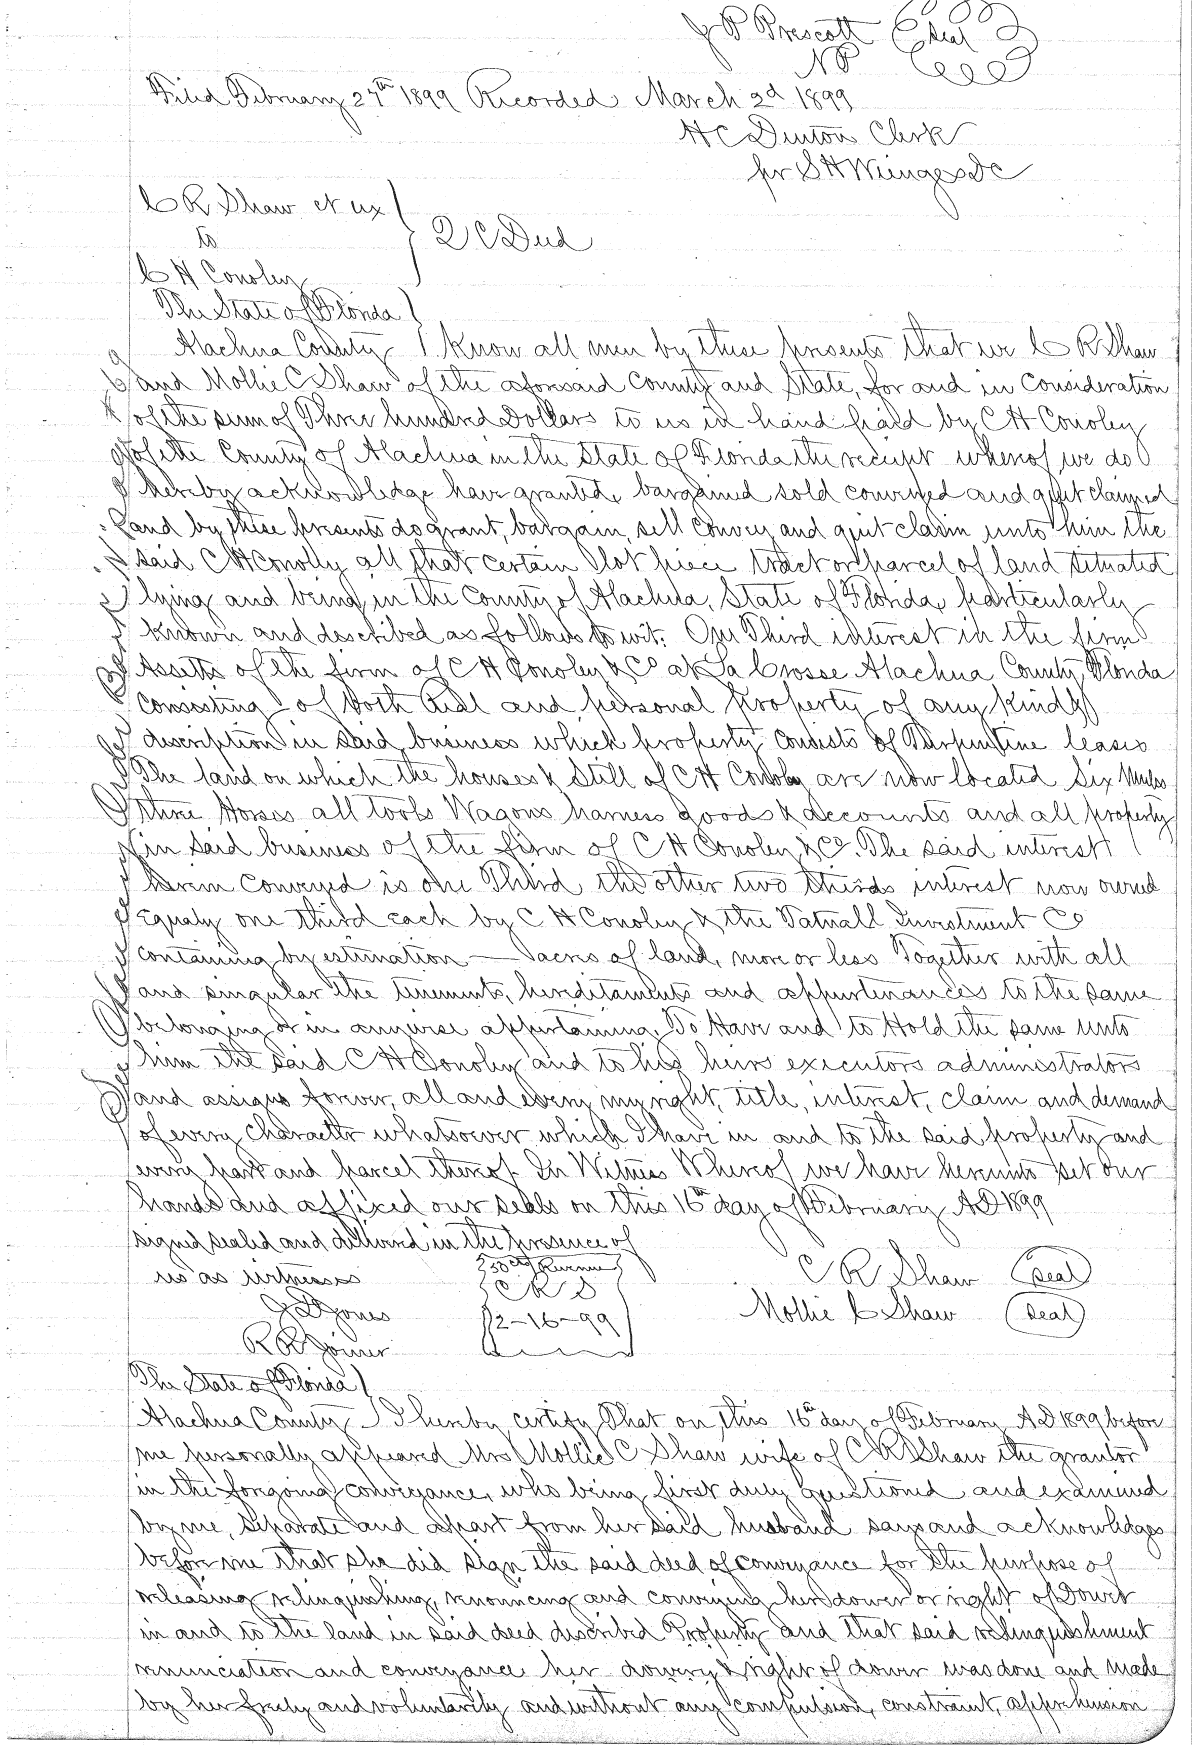 J P Prescott (Seal)
NP
Filed February 27th 1899 Recorded March 2d 1899
H C Denton Clerk
pr S H Wienges DC
C R Shaw et ux
to
Q C Deed
C H Conoley
The State of Florida
Alachua County Know all men by these presents that we C R Shaw
and Mollie C Shaw of the aforesaid County and State, for and in Consideration
of the sum of Three hundred Dollars to us in hand paid by C H Conoley
of the County of Alachua in the State of Florida the receipt whereof we do
hereby acknowledge have granted, bargained sold conveyed and quit claimed
and by these presents do grant, bargain, sell Convey and quit claim unto him the
said C H Conolly all that certain lot piece tract or parcel of land situated
lying and being in the County of Alachua, State of Florida, particularly
known and described as follows to wit: One Third interest in the firm
Assetts of the firm of C H Conoley & Co at La Crosse Alachua County, Florida
Consisting of both Real and personal property of any kind &
discription in said business which property consists of Turpentine leases
The land on which the houses & Still of C H Conoley are now located Six Mules
three Horses all tools Wagons harness goods & accounts and all property
in said business of the firm of C H Conoley & Co. The said interest
herein conveyed is one Third the other two thirds interest now owned
Equaly one third each by C H Conoley & the Tatnall Investment Co
containing by estimation — acres of land, more or less Together with all
and singular the tenements, hereditaments and appurtenances to the same
belonging or in anywise appertaining. To Have and to Hold the same unto
him the said C H Conoley and to his heirs executors administrators
and assigns forever, all and every my right, title, interest, claim and demand
of every character whatsoever which I have in and to the said property and
every part and parcel thereof. In Witness Whereof we have hereunto set our
hands and affixed our seals on this 16th day of February A D 1899
signed sealed and delivered in the presence of
us as witnesses 50 cts Revenue C R Shaw (Seal)
C R S
J D Jones 2-16-99 Mollie C Shaw (Seal)
R R Joiner
The State of Florida
Alachua County I hereby certify That on this 16th day of February A D 1899 before
me personally appeared Mrs Mollie C Shaw wife of C R Shaw the grantor
in the forgoing conveyance, who being first duly questioned and examined
by me, separate and apart from her said husband says and acknowledges
before me that she did sign the said deed of conveyance for the purpose of
releasing, relinquishing, renouncing and conveying her dower or right of Dower
in and to the land in said deed described Property and that said relinquishment
renunciation and conveyance her dowery & right of dower was done and made
by her freely and voluntarily and without any compulsion, constraint, apprehension